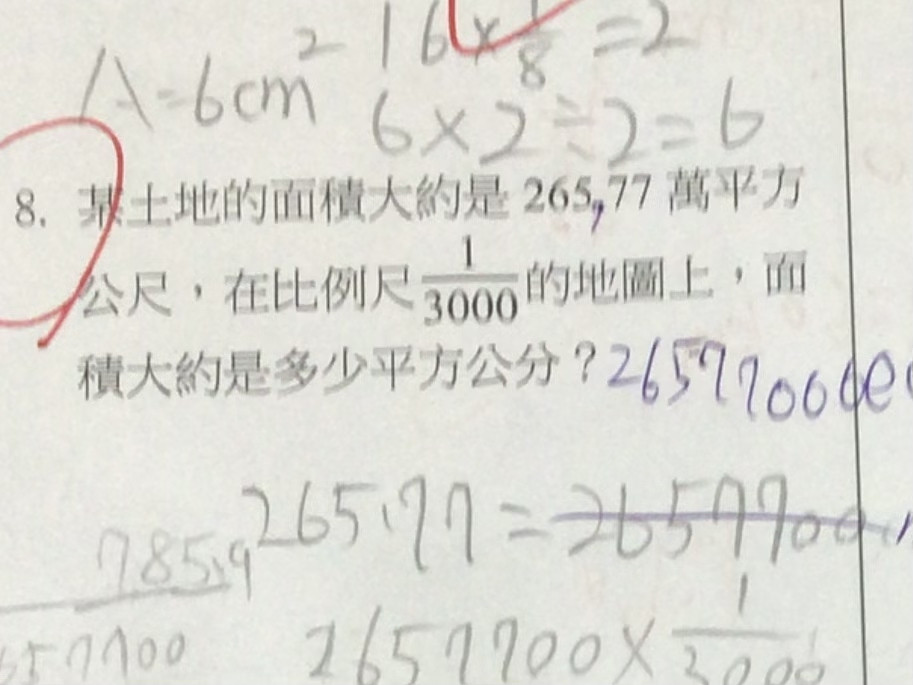 A=6cm² 16×1/8=2
6×2÷2=6
8. 某土地的面積大約是 265.77 萬平方
公尺，在比例尺 1/3000 的地圖上，面
積大約是多少平方公分？265770000
265.77=2657700
785.9
657700
2657700×1/3000